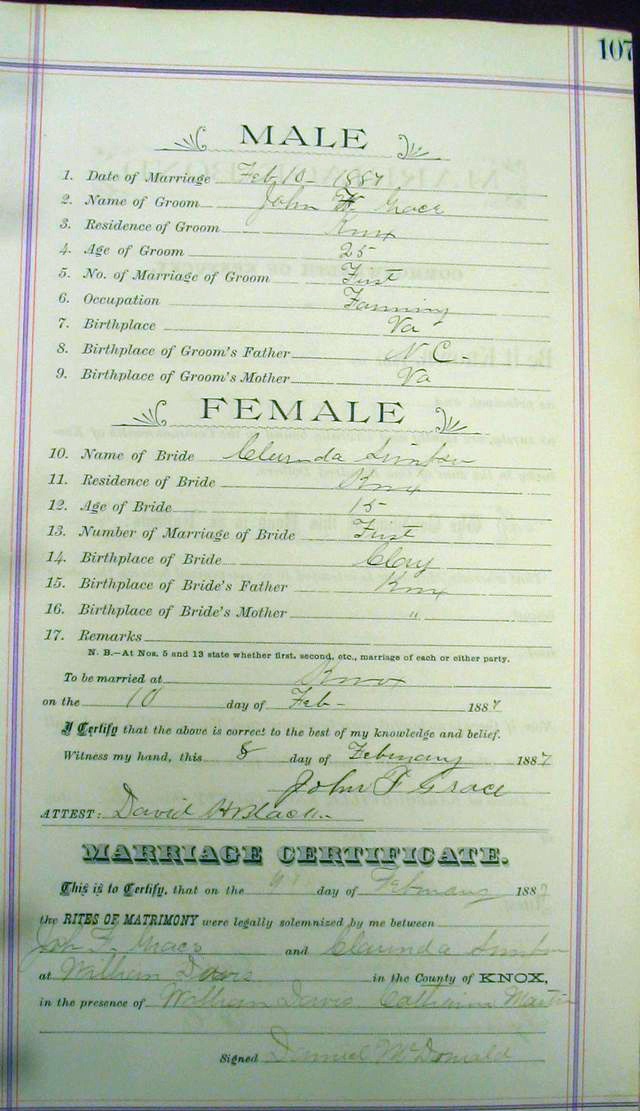 107
MALE
1. Date of Marriage Feb 10 - 1887
2. Name of Groom John F. Grace
3. Residence of Groom Knox
4. Age of Groom 25
5. No. of Marriage of Groom First
6. Occupation Farming
7. Birthplace Va
8. Birthplace of Groom's Father N C -
9. Birthplace of Groom's Mother Va
FEMALE
10. Name of Bride Clarinda
11. Residence of Bride Knox
12. Age of Bride 15
13. Number of Marriage of Bride First
14. Birthplace of Bride Clay
15. Birthplace of Bride's Father Knox
16. Birthplace of Bride's Mother "
17. Remarks
N. B.—At Nos. 5 and 13 state whether first, second, etc., marriage of each or either party.
To be married at Knox
on the 10 day of Feb - 1887
I Certify that the above is correct to the best of my knowledge and belief.
Witness my hand, this 8 day of February 1887
John F Grace
ATTEST: David H Black
MARRIAGE CERTIFICATE.
This is to Certify, that on the day of February 1887
the RITES OF MATRIMONY were legally solemnized by me between
Joh F. Grace and Clarinda
at William Davis in the County of KNOX,
in the presence of William Davis Catherine Martin
Signed Daniel McDonald